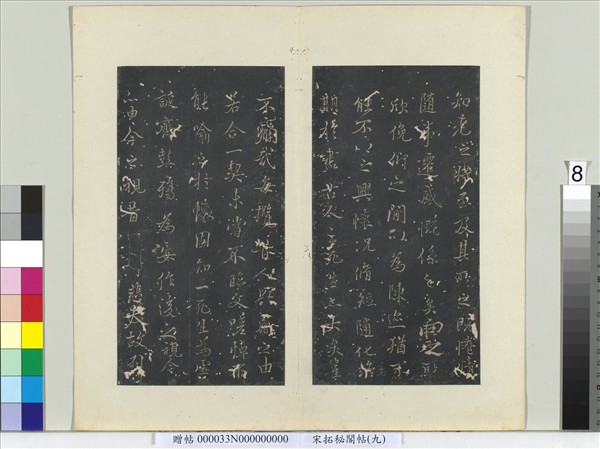 知老之將至及其所之既惓情
隨事遷感慨係之矣向之所
欣俛仰之閒以為陳迹猶不
能不以之興懷況脩短隨化終
期於盡古人云死生亦大矣豈
不痛哉每攬昔人興感之由
若合一契未嘗不臨文嗟悼不
能喻之於懷固知一死生為虛
誕齊彭殤為妄作後之視今
亦由今之視昔悲夫故列
8
贈帖 000033N000000000 宋拓秘閣帖(九)